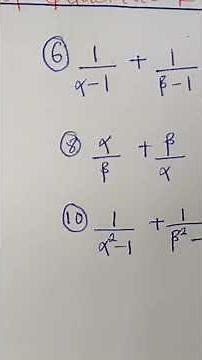 ⑥ 1/(α-1) + 1/(β-1)
⑧ α/β + β/α
⑩ 1/(α²-1) + 1/(β²-